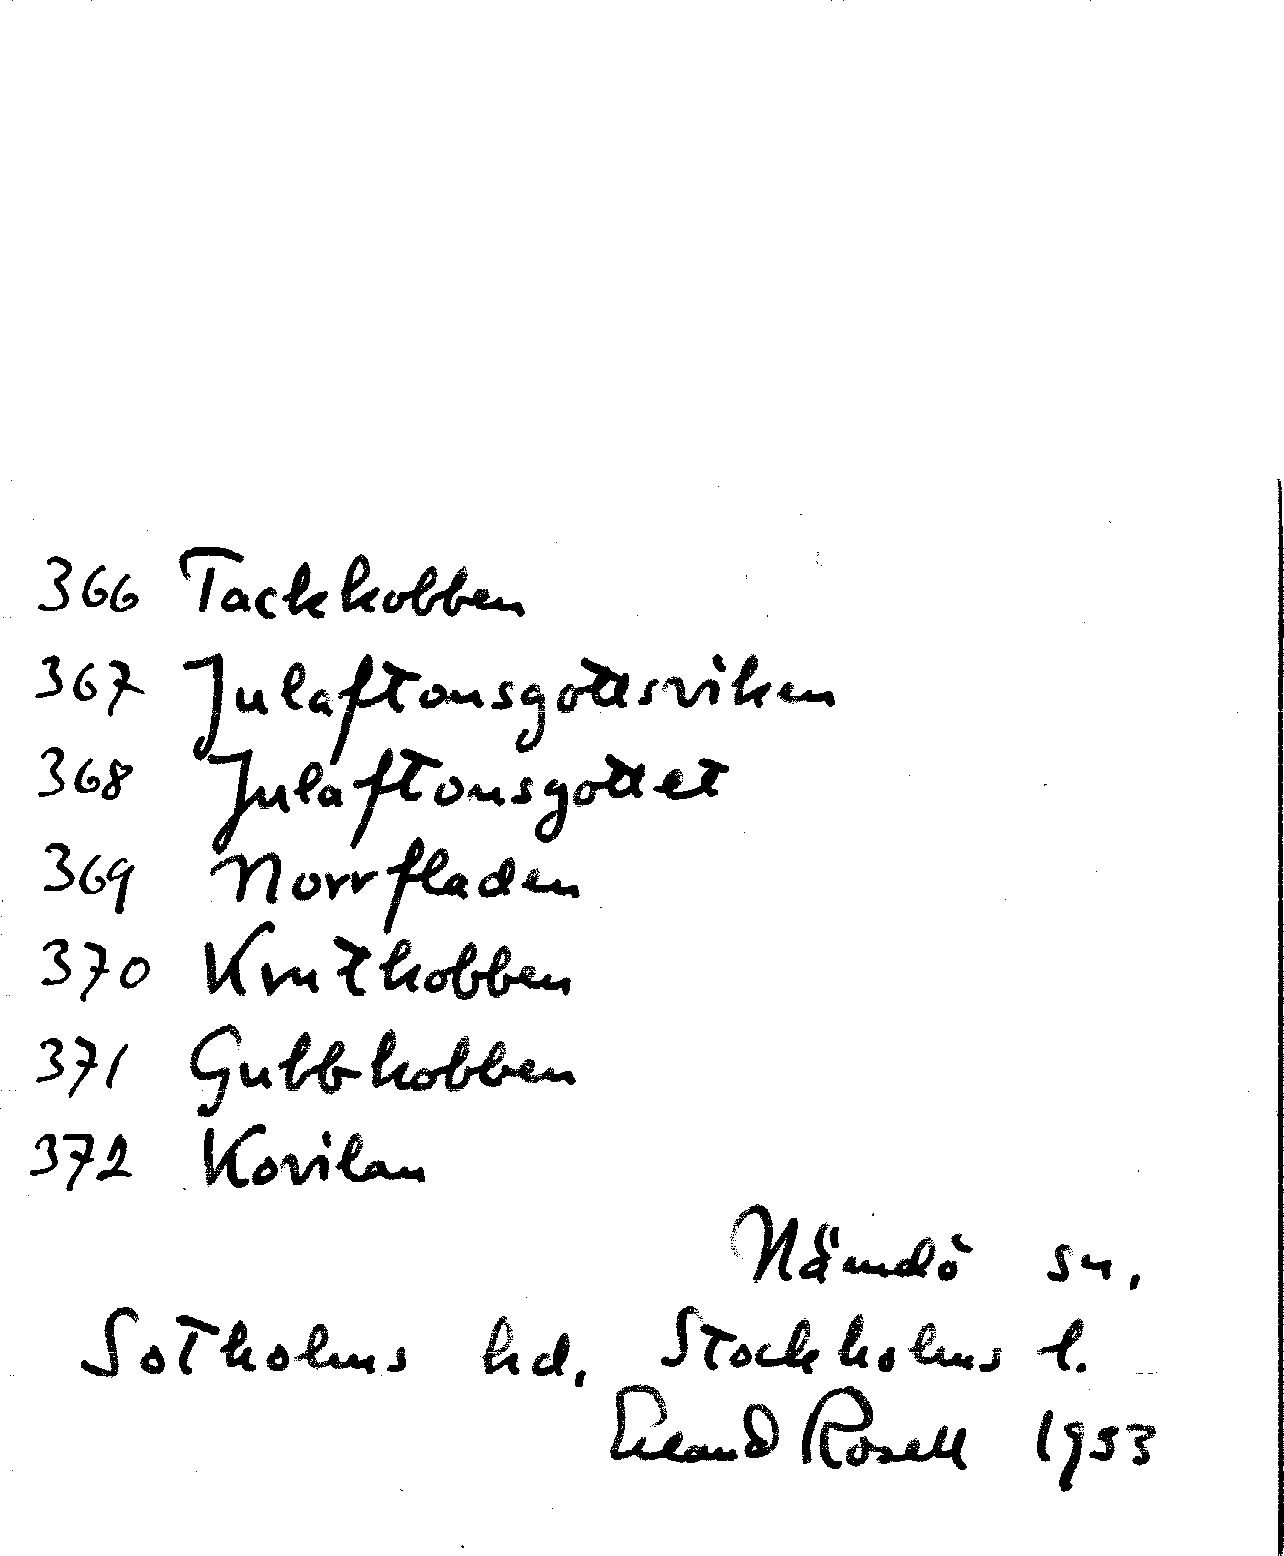 366 Tackkobben
367 Julaftonsgottsviken
368 Julaftonsgottet
369 Norrfladen
370 Krutkobben
371 Gubbkobben
372 Kovilan
Nämdö sn.
Sotholms hd. Stockholms l.
Erland Rosell 1953